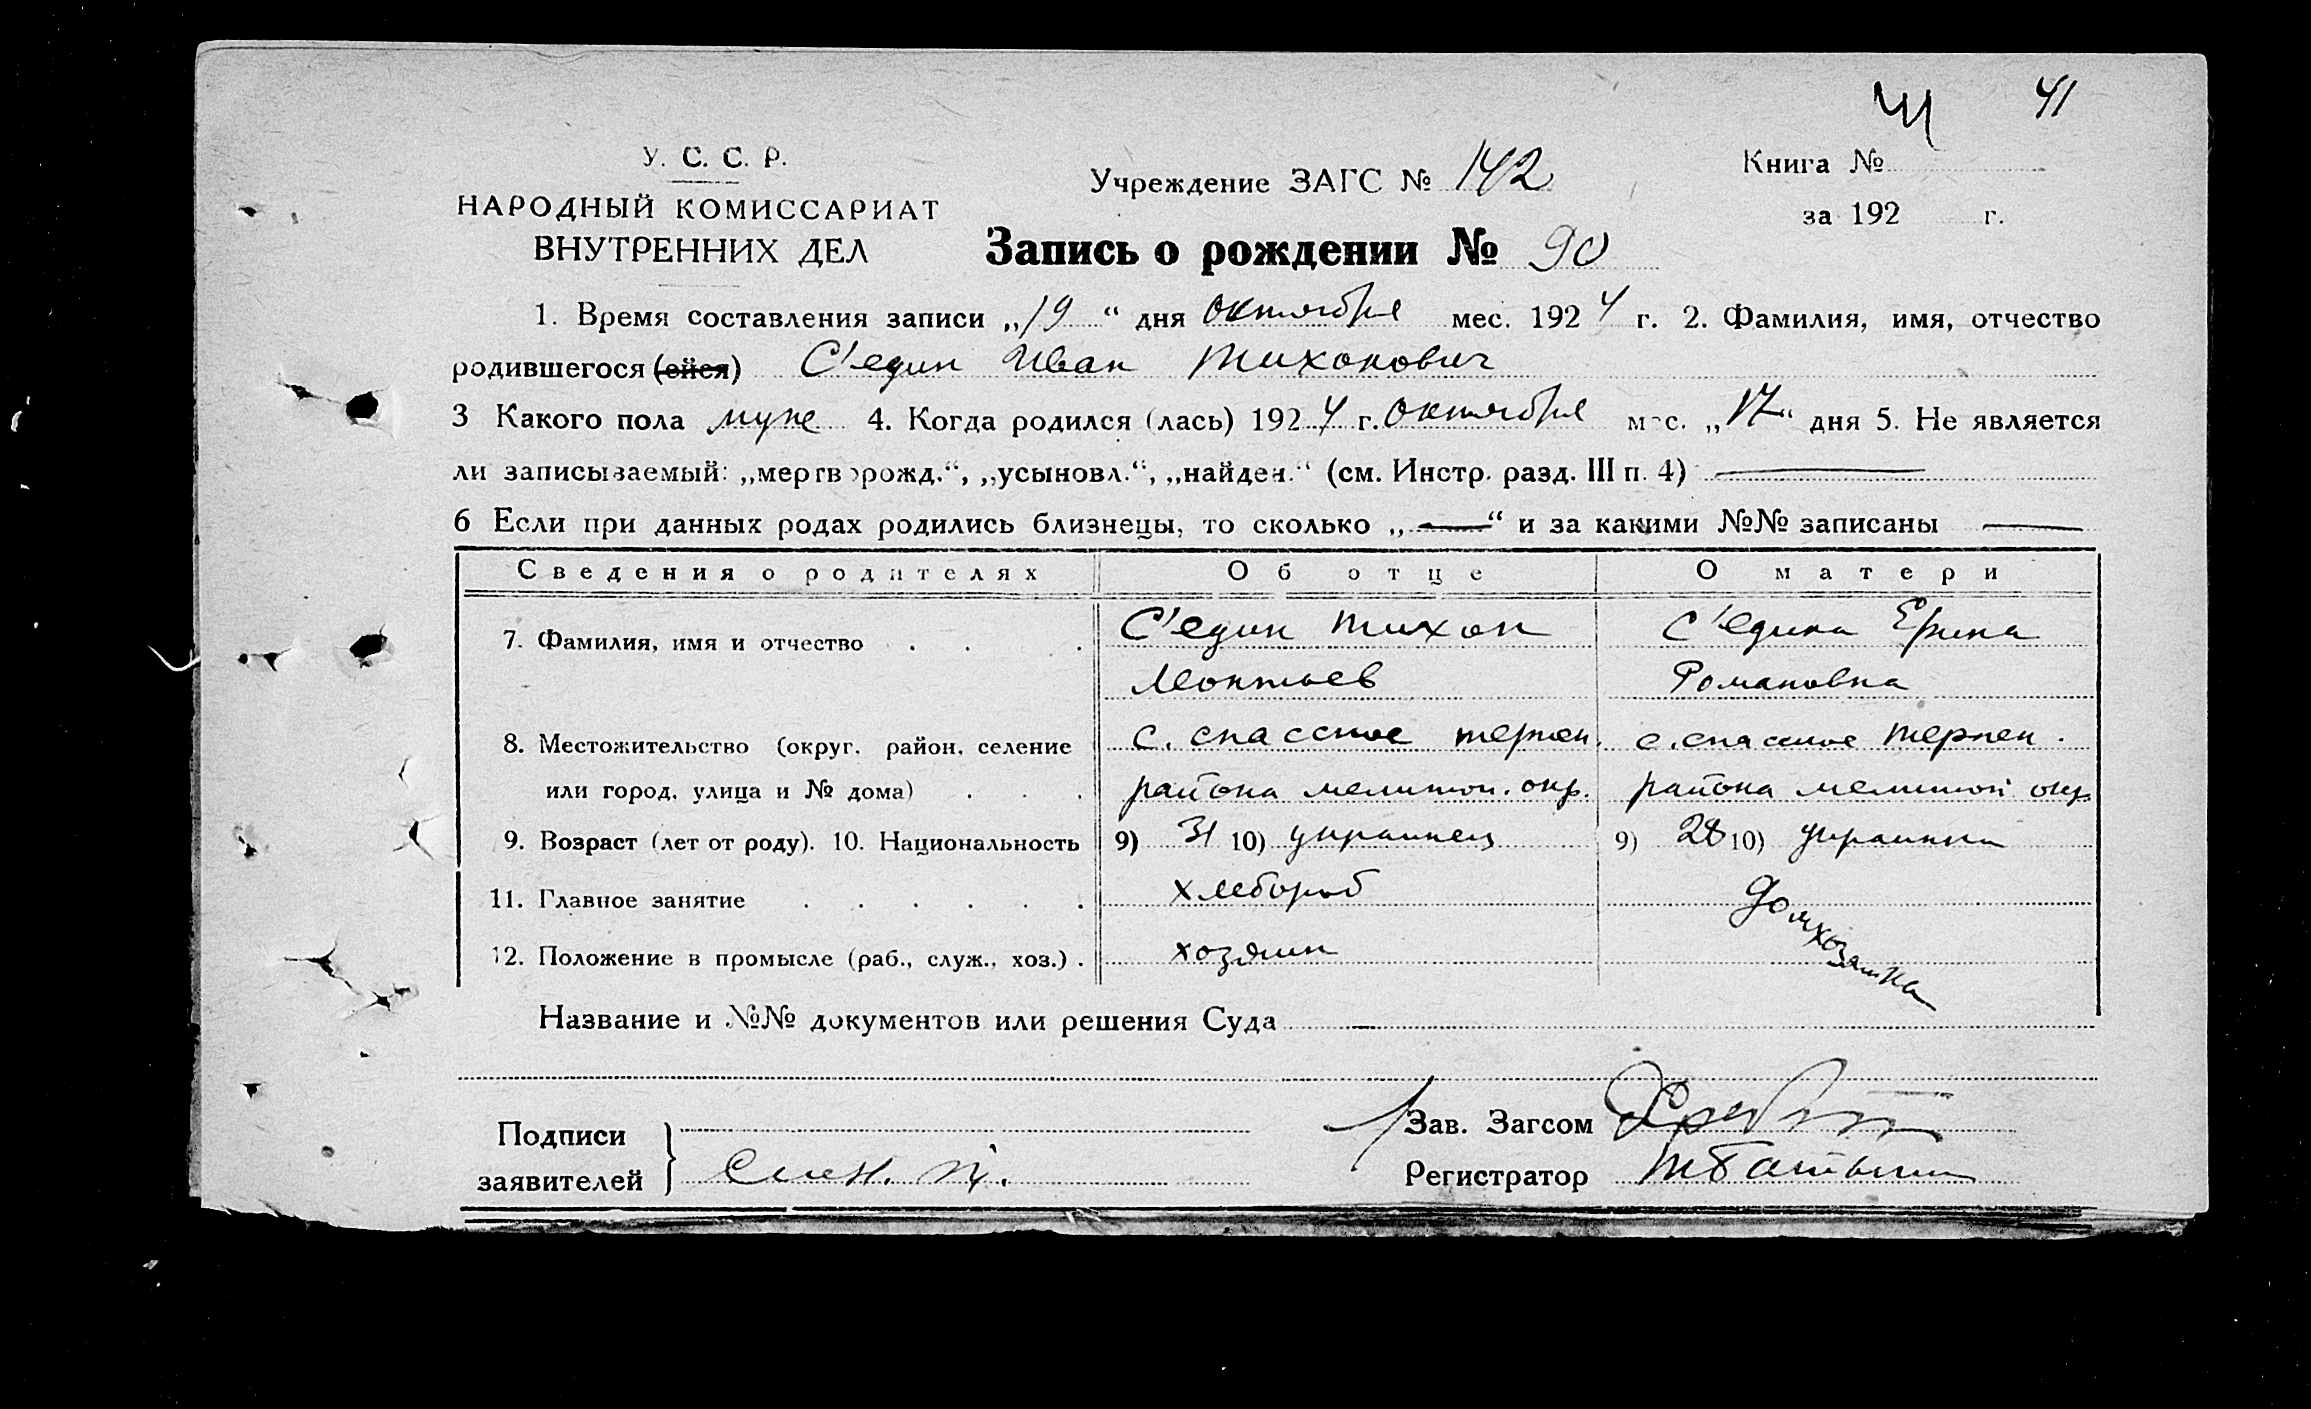 41
У. С. С. Р.
НАРОДНЫЙ КОМИССАРИАТ
ВНУТРЕННИХ ДЕЛ
Учреждение ЗАГС № 142
Книга №
за 192 г.
Запись о рождении № 90
1. Время составления записи „19“ дня октября мес. 1924 г. 2. Фамилия, имя, отчество
родившегося (ейся) С'един Иван Тихонович
3 Какого пола муж 4. Когда родился (лась) 1924 г. октября мес. „17“ дня 5. Не является
ли записываемый: „мертворожд.“, „усыновл.“, „найден.“ (см. Инстр. разд. III п. 4) —
6 Если при данных родах родились близнецы, то сколько „—“ и за какими №№ записаны —
Сведения о родителях Об отце О матери
7. Фамилия, имя и отчество . . . С'един Тихон С'едина Ерина
Леонтьев Романовна
8. Местожительство (округ, район, селение с. спасское терпен. с. спасское терпен.
или город, улица и № дома) . . . района мелитоп. окр. района мелитоп окр
9. Возраст (лет от роду). 10. Национальность 9) 31 10) украинец 9) 28 10) украинка
11. Главное занятие . . . . . . хлебороб домхозяйка
12. Положение в промысле (раб., служ., хоз.) . хозяин
Название и №№ документов или решения Суда —
Подписи
заявителей
Зав. Загсом
Регистратор